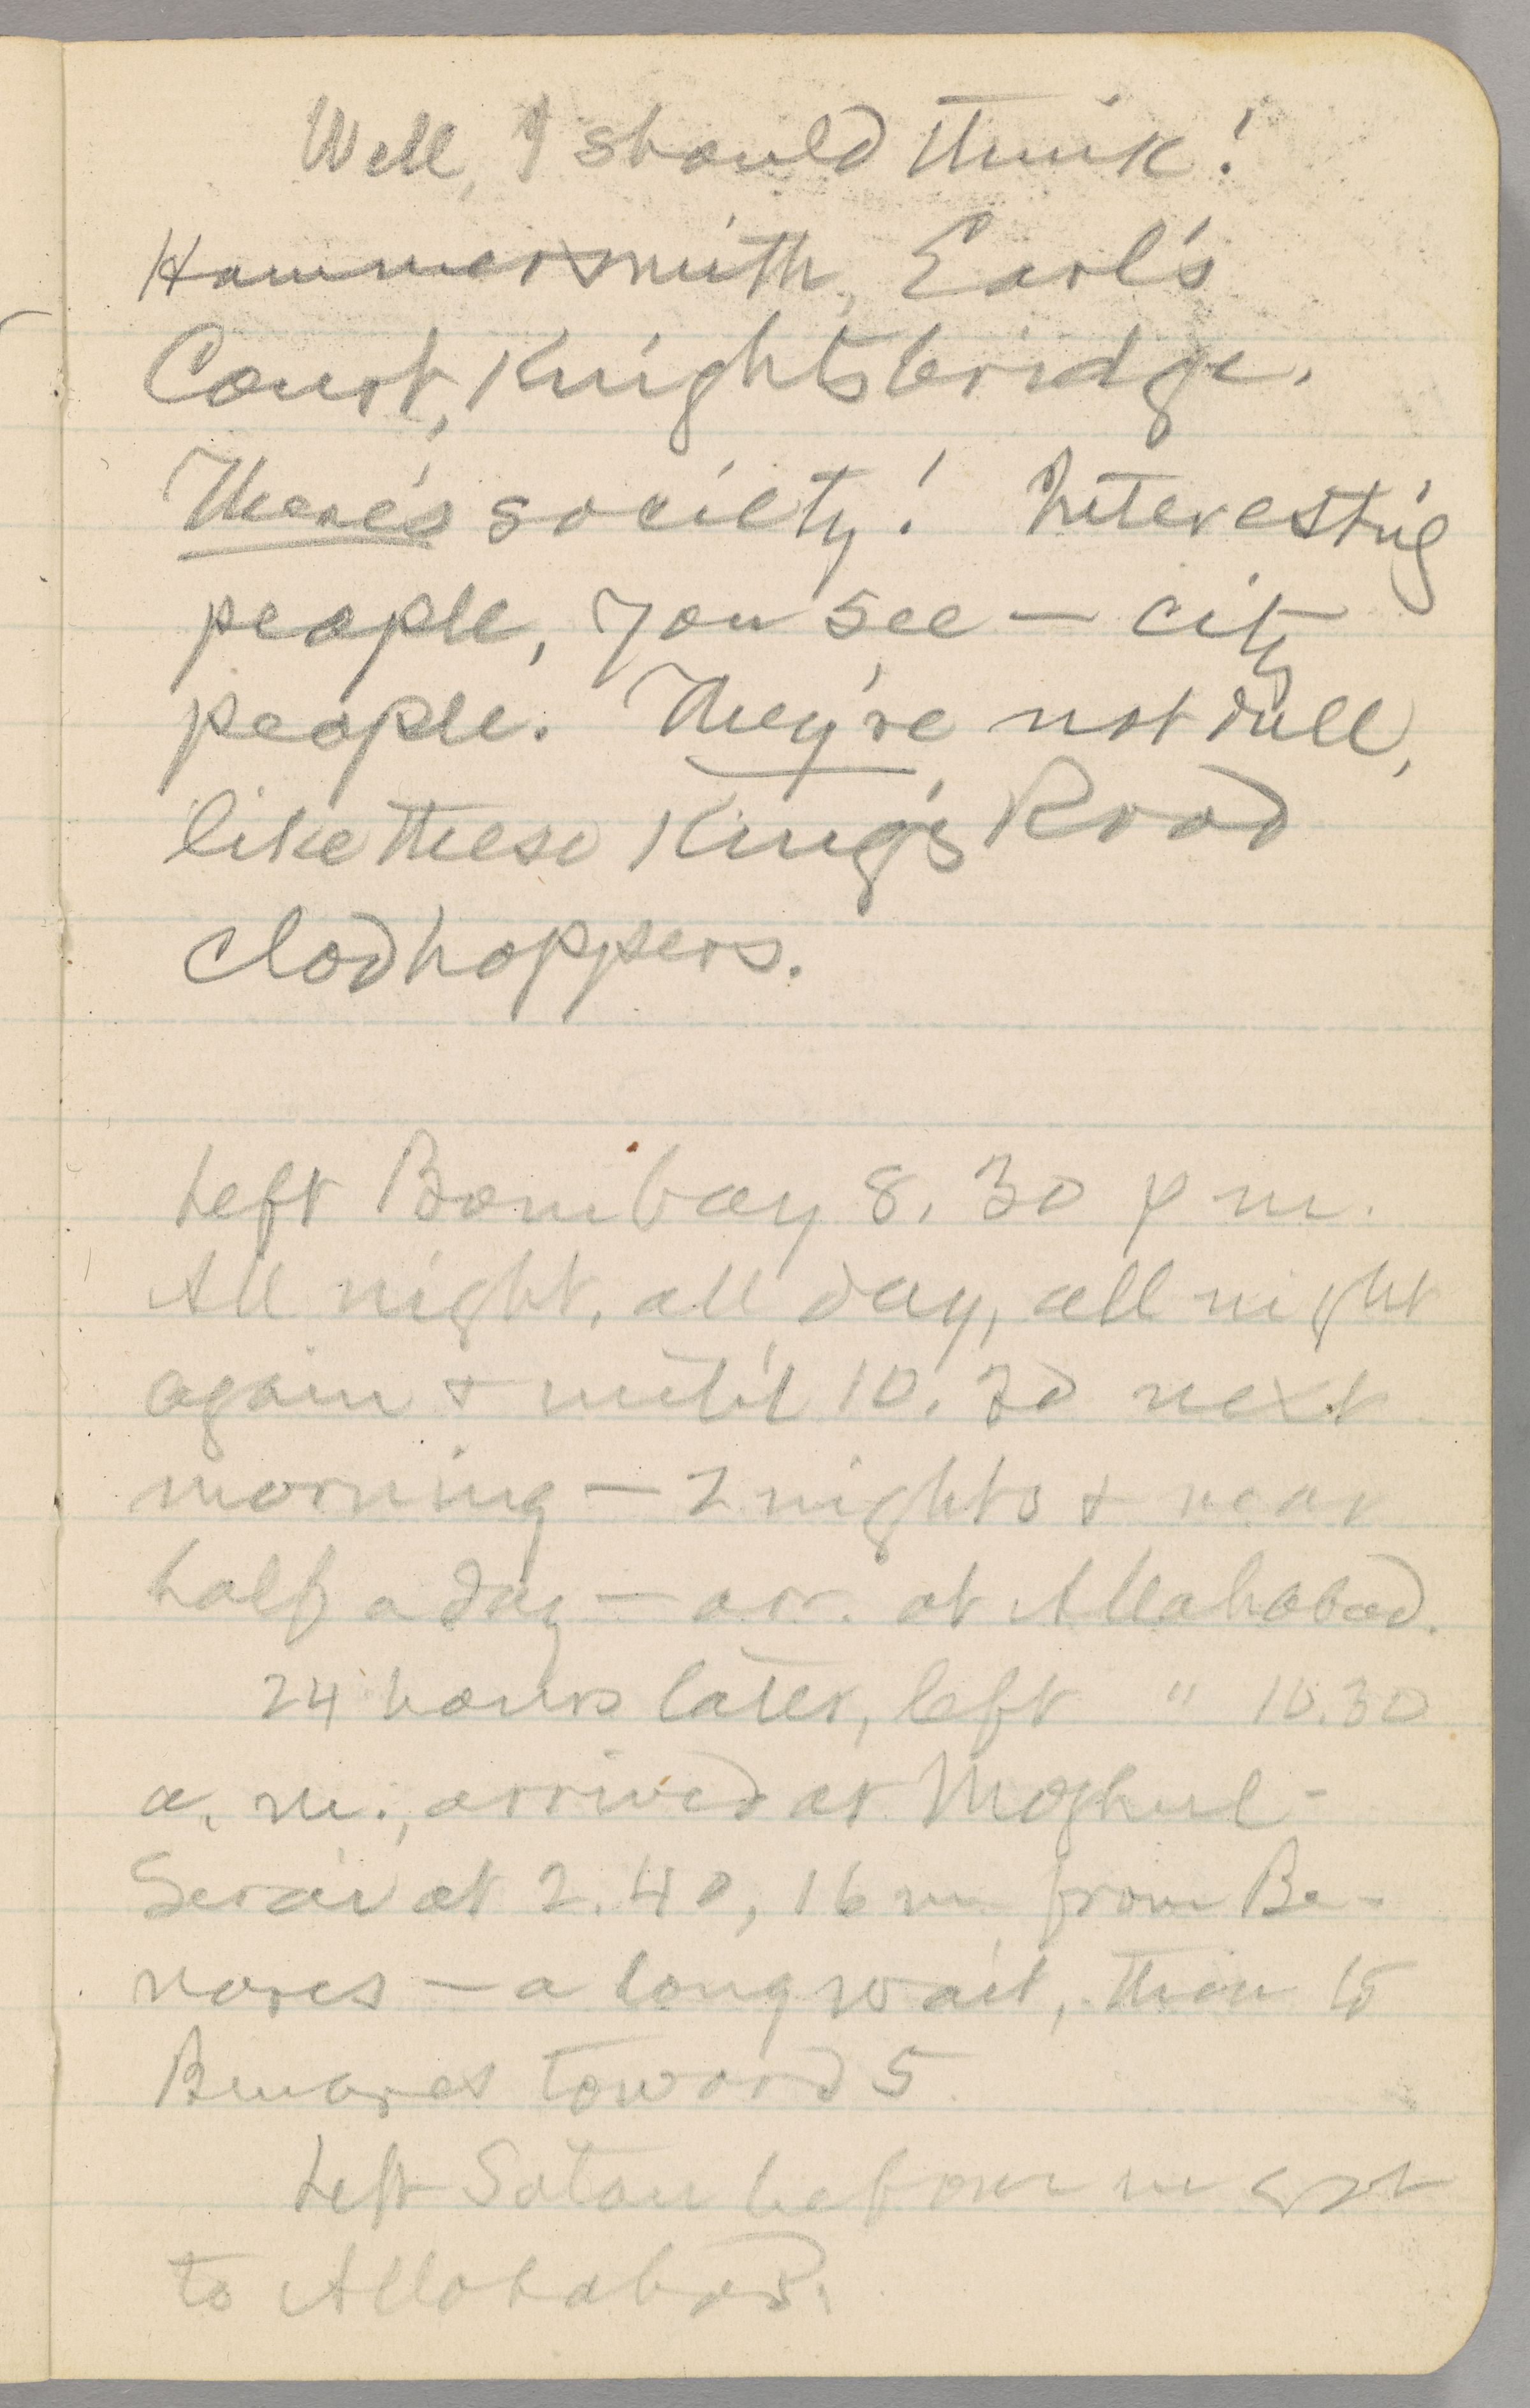 Well, I should think!
Hammersmith, Earl's
Court, Knightsbridge.
There's society! Interesting
people, you see — city
people. They're not dull,
like these King's Road
clodhoppers.
Left Bombay 8.30 p m.
All night, all day, all night
again & until 10.30 next
morning — 2 nights & near
half a day — arr. at Allahabad.
24 hours later, left " 10.30
a. m., arrived at Moghul-
Serai at 2.40, 16 m from Be-
nares — a long wait, then to
Benares toward 5
Left Satan before we got
to Allahabad.